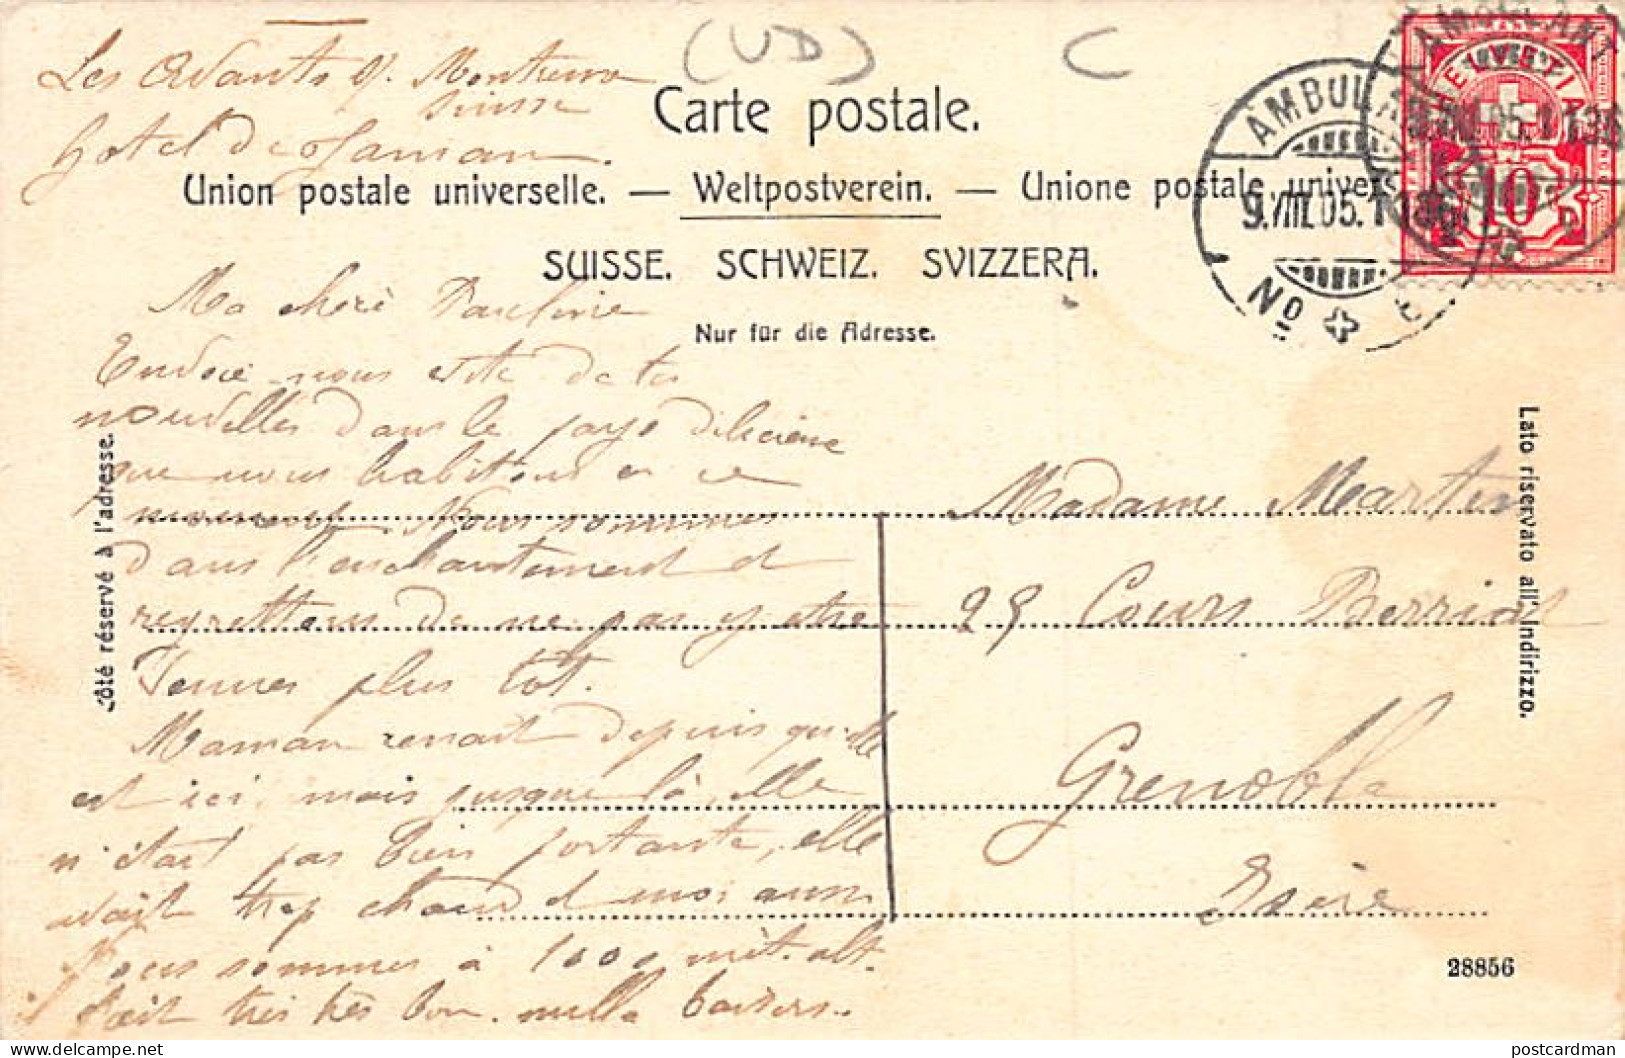 (UD)
C
Les Avants s/ Montreux
Suisse
Hotel de Jaman.
Carte postale.
Union postale universelle. — Weltpostverein. — Unione postale univers
SUISSE. SCHWEIZ. SVIZZERA.
Nur für die Adresse.
AMBULANT
9.VIII.05.1
No
HELVETIA
10
Côté réservé à l'adresse.
Lato riservato all'Indirizzo.
Ma chère Pauline
Envoie-nous vite de tes
nouvelles dans le pays délicieux
que nous habitons en ce
moment. Nous sommes
dans l'enchantement et
regrettons de ne pas y être
venues plus tôt.
Maman renait depuis qu'elle
est ici, mais jusque là, elle
n'était pas bien portante, elle
avait trop chaud et moi aussi
Nous sommes à 1000 mèt. alt.
il fait très très bon. mille baisers.
Madame Martin
25 Cours Berriat
Grenoble
Isère
28856
postcardman